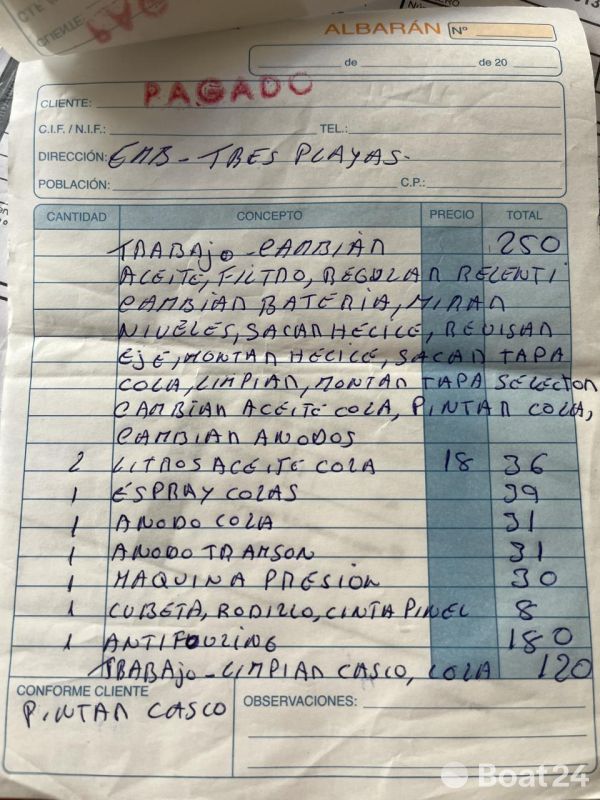 ALBARÁN Nº
de de 20
PAGADO
CLIENTE:
C.I.F. / N.I.F.: TEL.:
DIRECCIÓN: EMB - TRES PLAYAS-
POBLACIÓN: C.P.:
CANTIDAD CONCEPTO PRECIO TOTAL
TRABAJO - CAMBIAR 250
ACEITE, FILTRO, REGULAR RELENTI
CAMBIAR BATERIA, MIRAR
NIVELES, SACAR HELICE, REVISAR
EJE, MONTAR HELICE, SACAR TAPA
COLA, LIMPIAR, MONTAR TAPA SELECTOR
CAMBIAR ACEITE COLA, PINTAR COLA,
CAMBIAR ANODOS
2 LITROS ACEITE COLA 18 36
1 ESPRAY COLAS 39
1 ANODO COLA 31
1 ANODO TRAMSON 31
1 MAQUINA PRESION 30
1 CUBETA, RODILLO, CINTA PINEL 8
1 ANTIFOULING 180
TRABAJO - LIMPIAR CASCO, COLA 120
CONFORME CLIENTE OBSERVACIONES:
PINTAR CASCO
Boat24